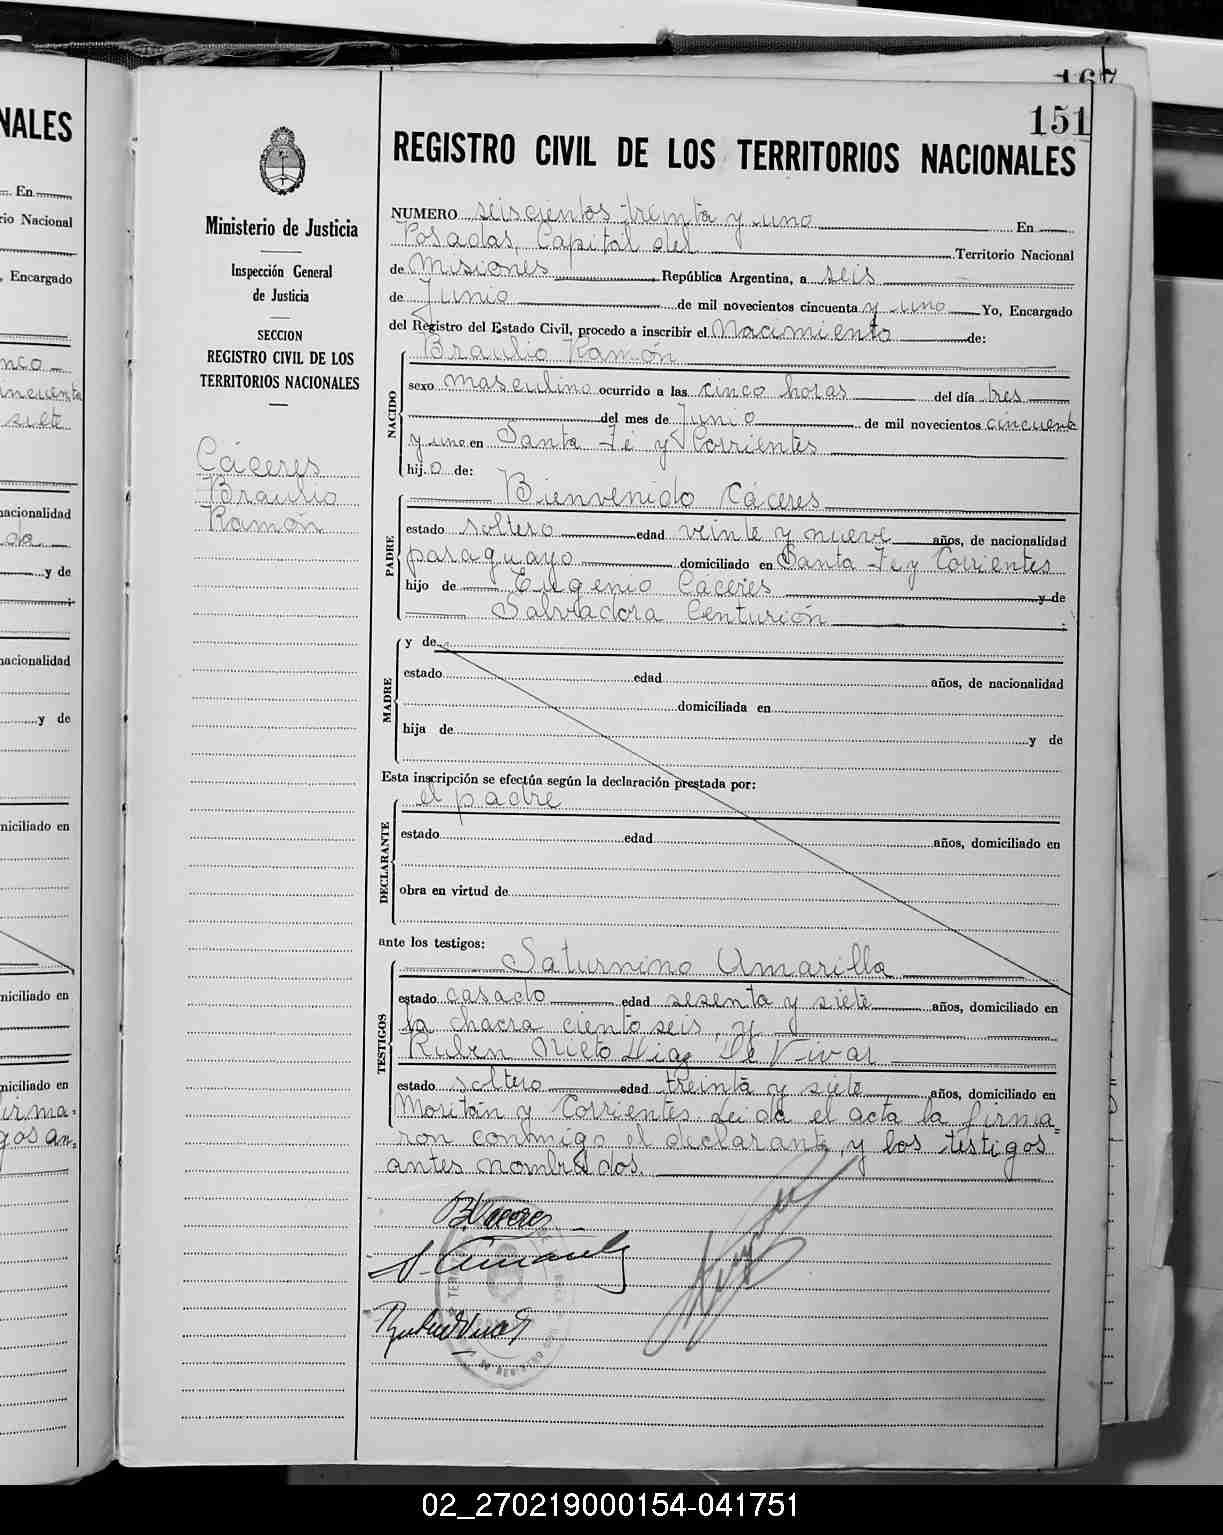 167
151
NALES
REGISTRO CIVIL DE LOS TERRITORIOS NACIONALES
Ministerio de Justicia
Inspección General
de Justicia
SECCION
REGISTRO CIVIL DE LOS
TERRITORIOS NACIONALES
Cáceres
Braulio
Ramón
NUMERO seiscientos treinta y uno En
Posadas, Capital del Territorio Nacional
de Misiones, República Argentina, a seis
de Junio de mil novecientos cincuenta y uno Yo, Encargado
del Registro del Estado Civil, procedo a inscribir el Nacimiento de:
NACIDO
Braulio Ramón
sexo masculino ocurrido a las cinco horas del día tres
del mes de Junio de mil novecientos cincuenta
y uno en Santa Fé y Corrientes
hijo de:
PADRE
Bienvenido Cáceres
estado soltero edad veinte y nueve años, de nacionalidad
paraguayo domiciliado en Santa Fe y Corrientes
hijo de Eugenio Cáceres y de
Salvadora Centurión ;
MADRE
y de
estado edad años, de nacionalidad
domiciliada en
hija de y de
Esta inscripción se efectúa según la declaración prestada por:
DECLARANTE
el padre
estado edad años, domiciliado en
obra en virtud de
ante los testigos:
TESTIGOS
Saturnino Amarilla
estado casado edad sesenta y siete años, domiciliado en
la chacra ciento seis, y
Rubén Nieto Diaz De Vivar
estado soltero edad treinta y siete años, domiciliado en
Moritán y Corrientes. Leida el acta la firma=
ron conmigo el declarante, y los testigos
antes nombrados.
B. Caceres
S. Amarilla
02_270219000154-041751